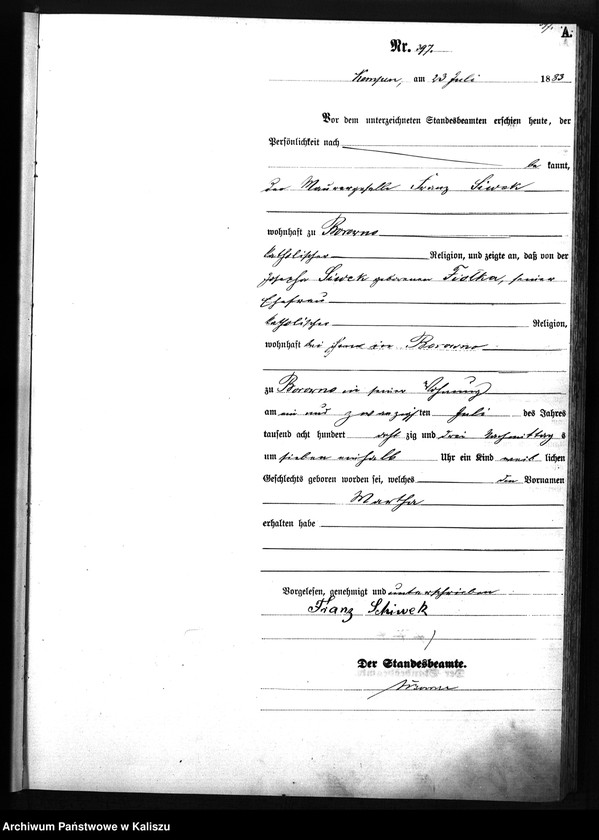 A.
Nr. 197.
Kempen, am 23 Juli 1883
Vor dem unterzeichneten Standesbeamten erschien heute, der
Persönlichkeit nach
be kannt,
der Maurergeselle Franz Siwek
wohnhaft zu Borowno
katholischer Religion, und zeigte an, daß von der
Josepha Siwek geborenen Fiolka, seiner
Ehefrau
katholischer Religion,
wohnhaft bei ihm in Borowno
zu Borowno in seiner Wohnung
am ein und zwanzig ten Juli des Jahres
tausend acht hundert acht zig und drei Nachmittag s
um sieben einhalb Uhr ein Kind weib lichen
Geschlechts geboren worden sei, welches den Vornamen
Martha
erhalten habe
Vorgelesen, genehmigt und unterschrieben
Franz Schiwek
Der Standesbeamte.
Archiwum Państwowe w Kaliszu